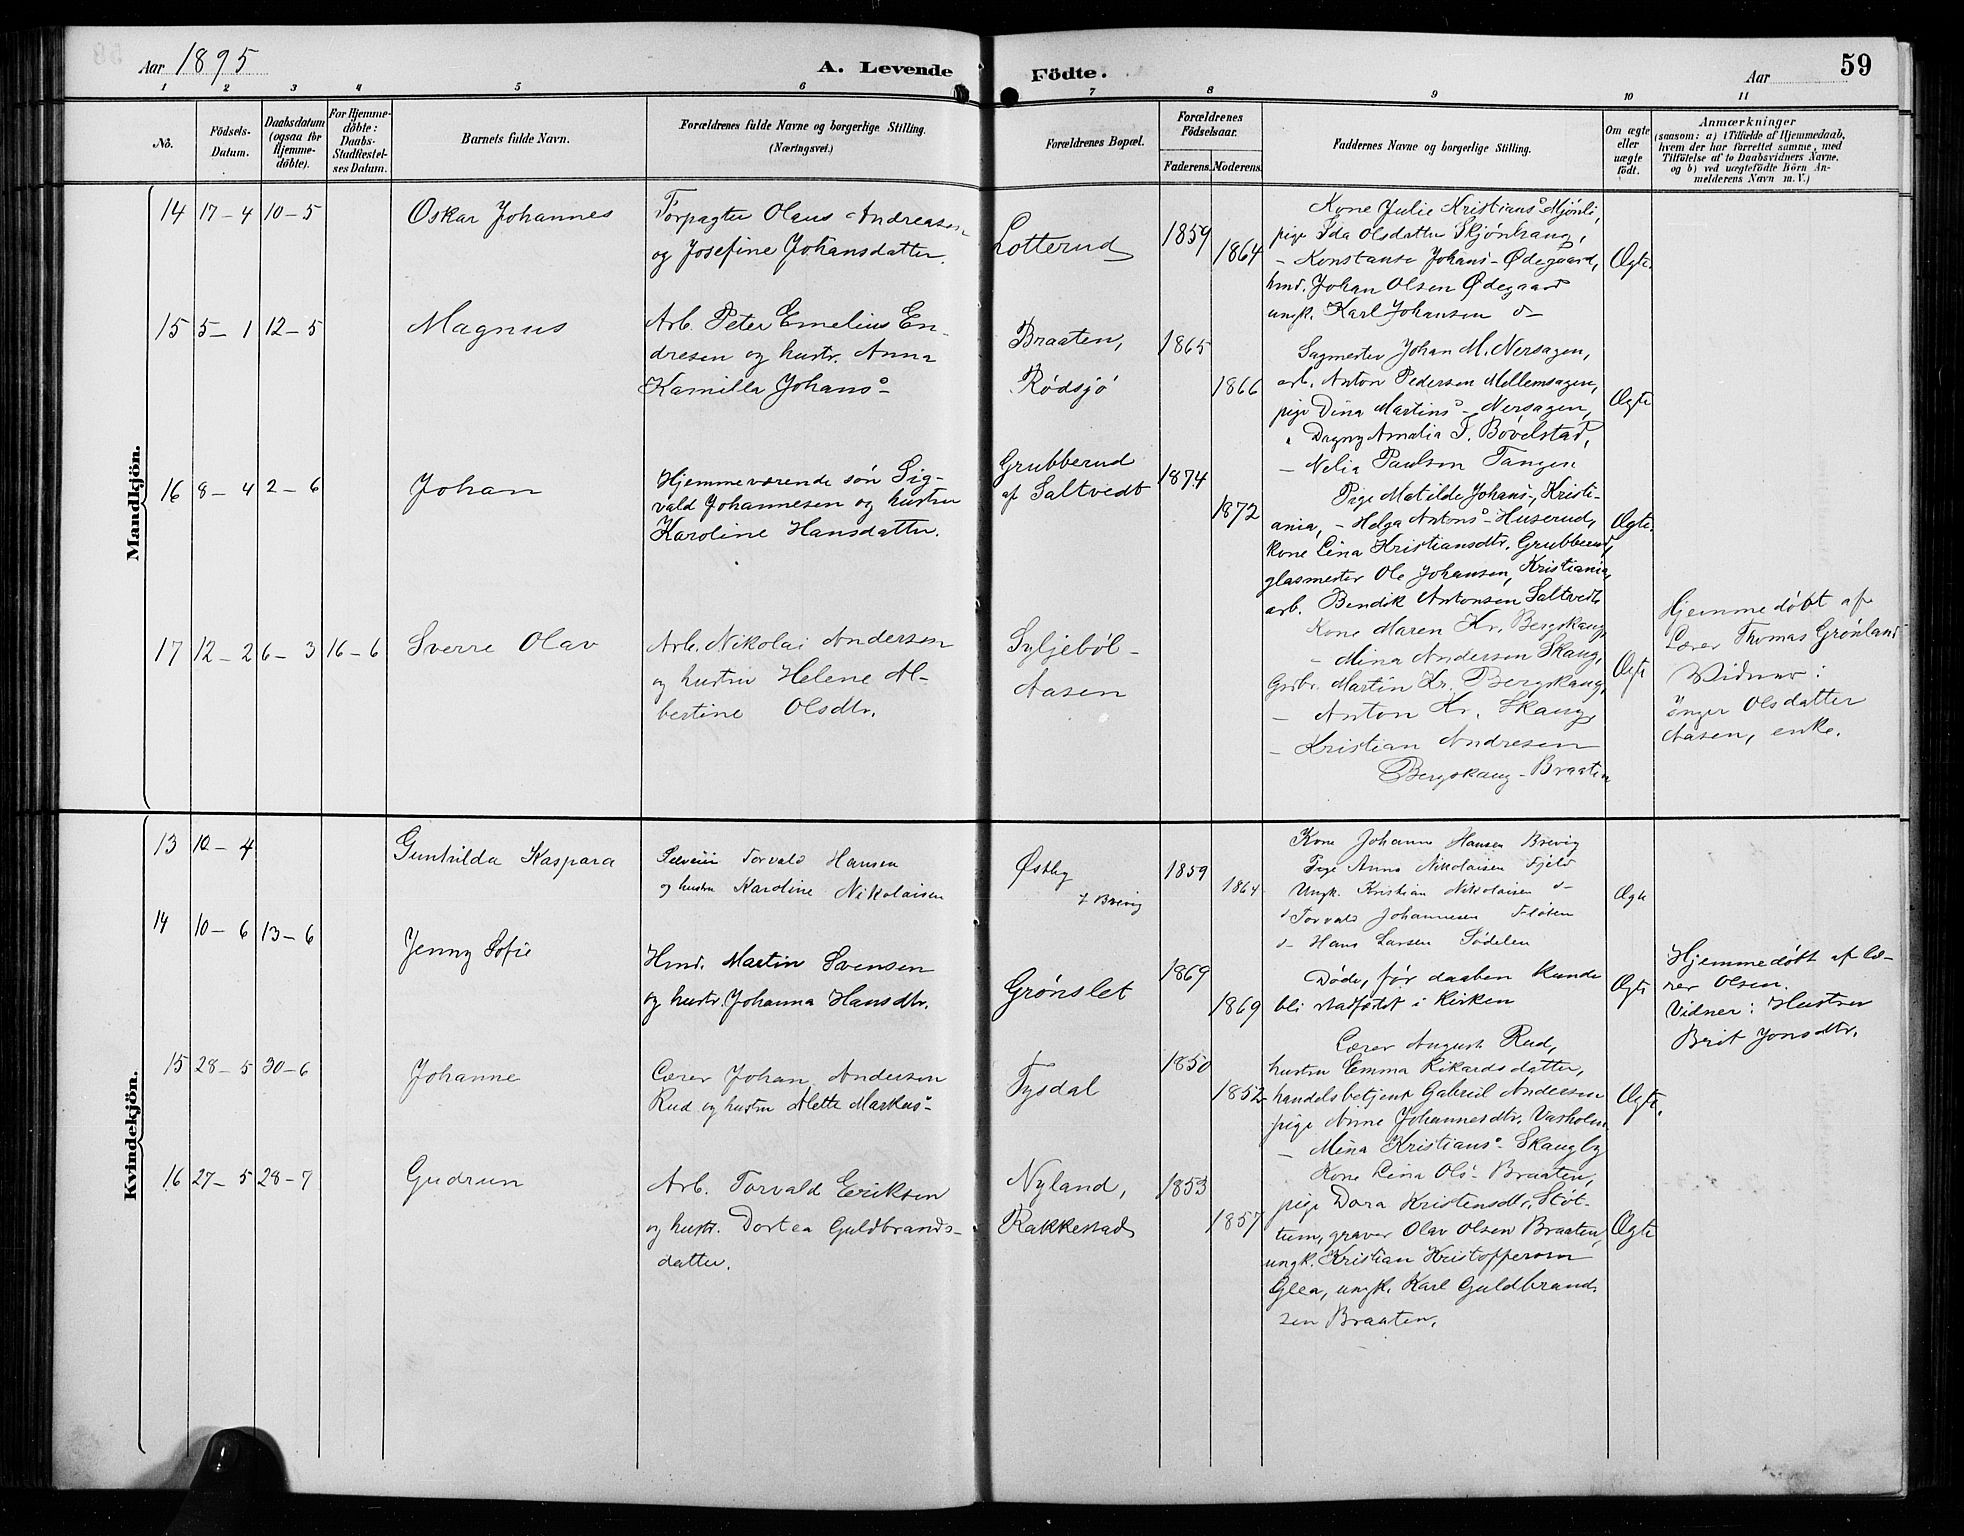 Aar 1895
A. Levende
Födte.
Aar
59
1 2 3 4 5 6 7 8 9 10 11
No.
Födsels-
Datum.
Daabsdatum
(ogsaa for
Hjemme-
döbte).
For Hjemme-
döbte:
Daabs-
Stadfæstel-
ses Datum.
Barnets fulde Navn.
Forældrenes fulde Navne og borgerlige Stilling.
(Næringsvei.)
Forældrenes Bopæl.
Forældrenes
Födselsaar.
Faderens. Moderens.
Faddernes Navne og borgerlige Stilling.
Om ægte
eller
uægte
födt.
Anmærkninger
(saasom: a) i Tilfælde af Hjemmedaab,
hvem der har forrettet samme, med
Tilföielse af to Daabsvidners Navne,
og b) ved uægtefödte Börn An-
melderens Navn m. V.)
Mandkjön.
14 17-4 10-5
Oskar Johannes
Forpagter Olaus Andreasen
og Josefine Johansdatter.
Lotterud
1859
1864
Kone Julie Kristians° Mjönli,
pige Ida Olsdatter Skjönhaug,
- Konstanse Johans- Ødegaard,
hmd. Johan Olsen Ødegaard
ungk. Karl Johansen d-
Ægte.
15 5-1 12-5
Magnus
Arb. Peter Emelius En-
dresen og hustr. Anna
Kamilla Johans°-
Braaten,
Rødsjö
1865
1866
Sagmester Johan M. Nersagen,
arb. Anton Pedersen Mellemsagen,
pige Dina Martins°- Nersagen,
" Dagny Amalia T. Bövelstad,
- Nelia Paulsen Tangen
Ægte
16 8-4 2-6
Johan
Hjemmeværende sön Sig-
vald Johannesen og hustru
Karoline Hansdatter.
Grubberud
af Saltvedt
1874
1872
Pige Matilde Johans-, Kristi-
ania, - Helga Antons°- Huserud,
kone Lina Kristiansdtr. Grubberud,
glasmester Ole Johansen, Kristiania,
arb. Bendik Antonsen Saltvedt
Ægte.
17 12-2 6-3 16-6
Sverre Olav
Arb. Nikolai Andersen
og hustru Helene Al-
bertine Olsdtr.
Syljeböl-
Aasen
Kone Maren Kr. Bergskaug,
- Mina Andersen Skaug,
Grbr. Martin Kr. Bergskaug,
- Anton Kr. Skaug,
- Kristian Andresen
Bergskaug-Braaten
Ægte
Hjemmedöbt af
Lærer Thomas Grönland
Vidner:
Inger Olsdatter
Aasen, enke.
Kvindekjön.
13 10-4
Gunhilda Kaspara
Torvald Hansen
og hustru Karoline Nikolaisen
Østby
Brevig
1859
1864
Kone Johanne Hansen Brevig
Pige Anna Nikolaisen Fjeld
Ungk. Kristian Nikolaisen d-
d- Torvald Johannesen Flöten
d- Hans Larsen Södelen
Ægte
14 10-6 13-6
Jenny Sofie
Hmd. Martin Svensen
og hustr. Johanna Hansdtr.
Grönslet
1869
1869
Döde, för daaben kunde
bli stadfestet i kirken
Ægte
Hjemmedöbt af læ-
rer Olsen.
Vidner: Hustru
Brit Jonsdtr.
15 28-5 30-6
Johanne
Lærer Johan Andersen
Rud og hustru Alette Markus°-
Tysdal
1850
1852
Lærer August Rud,
hustru Emma Rikardsdatter,
handelsbetjent Gabriel Andersen
pige Anne Johannesdtr. Vasholm
- Mina Kristians°- Skaugby
Ægte.
16 27-5 28-7
Gudrun
Arb. Torvald Eriksen
og hustr. Dortea Guldbrands-
datter.
Nyland,
Rakkestad
1853
1857
Kone Lina Ols- Braaten,
pige Dora Kristensdtr. Stöt-
tum, graver Olav Olsen Braaten,
ungk. Kristian Kristoffersen
Glea, ungk. Karl Guldbrand-
sen Braaten.
Ægte